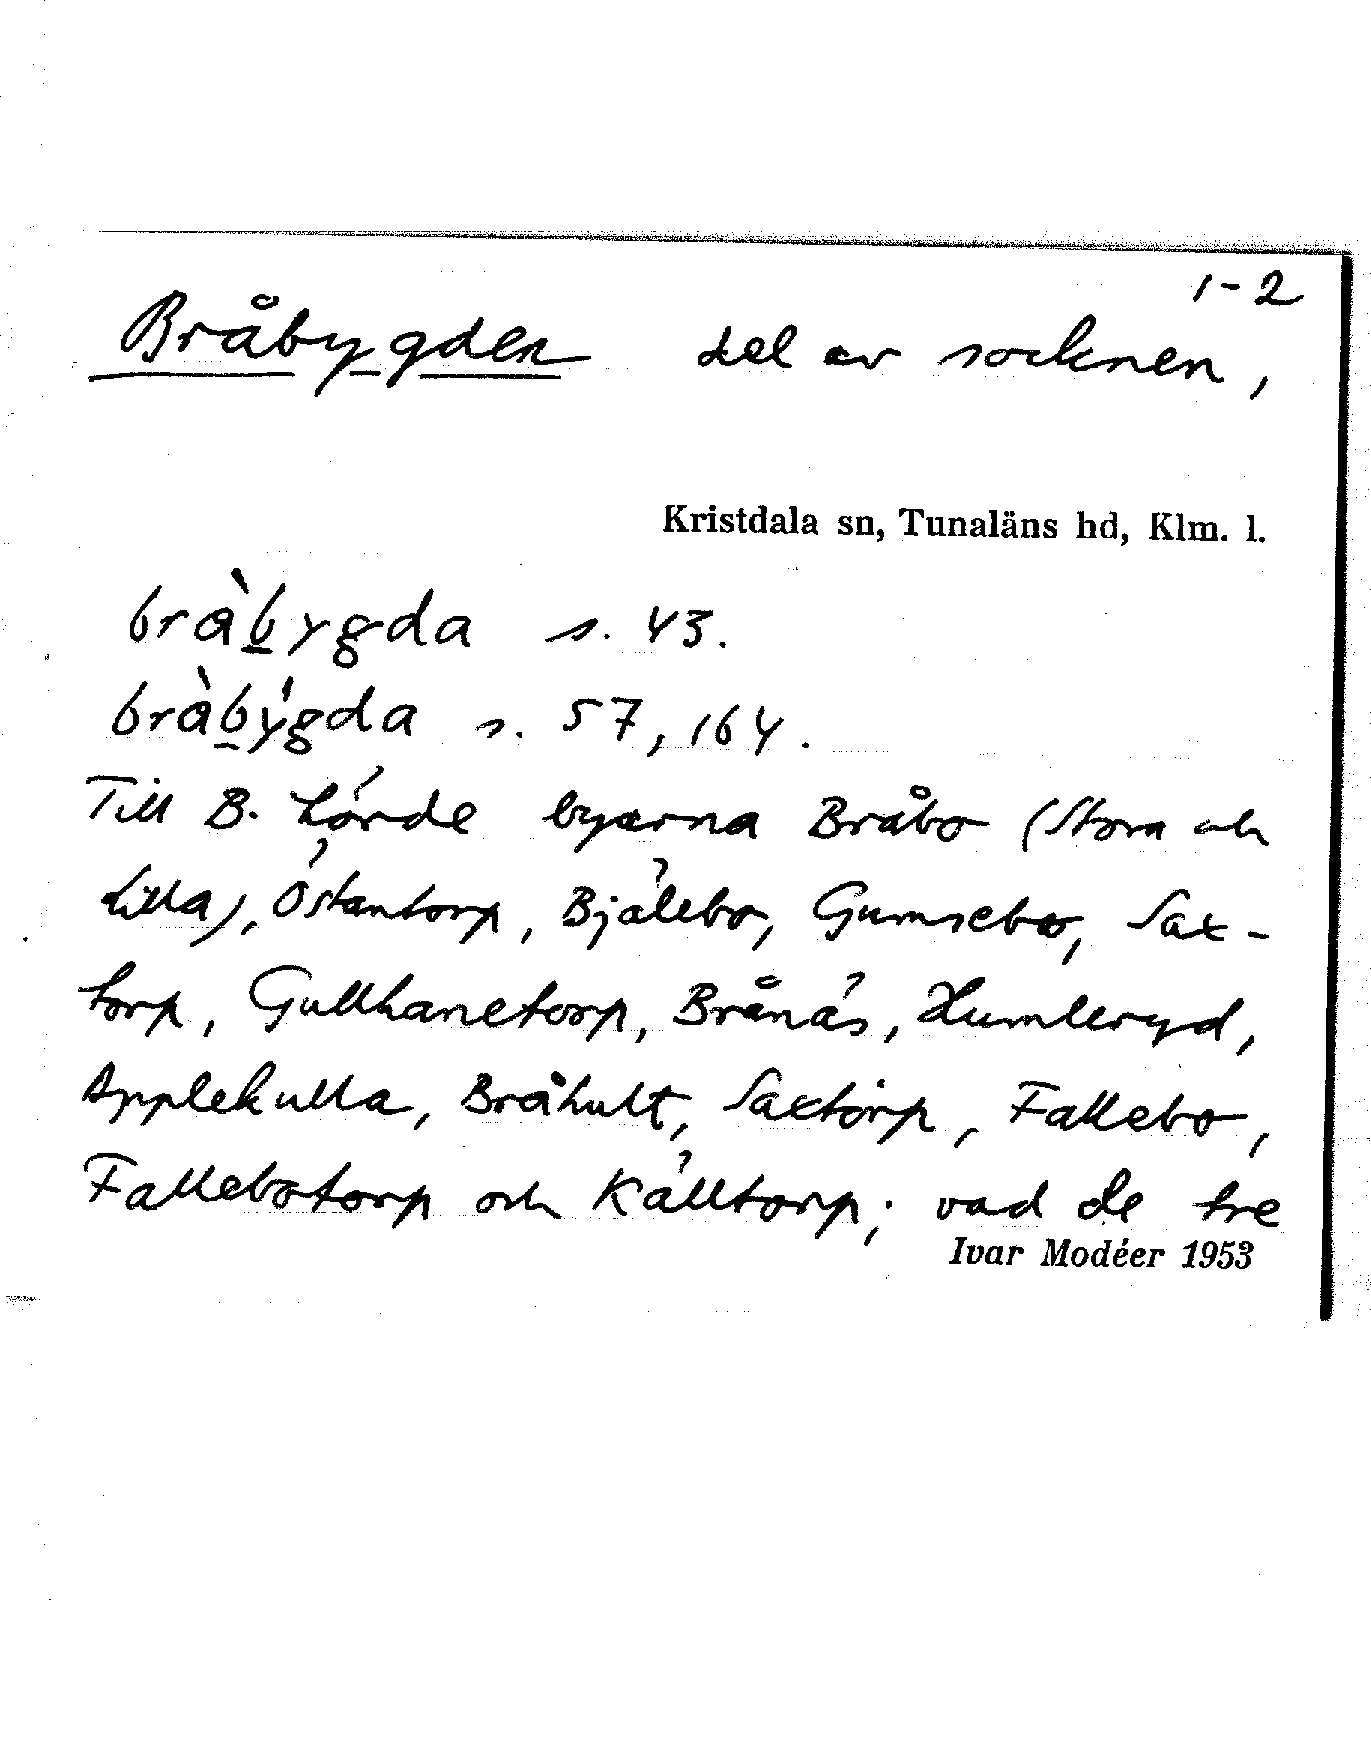 1-2
Bråbygden del av socknen,
Kristdala sn, Tunaläns hd, Klm. l.
bràbygda s. 43.
bràbýgda s. 57, 164.
Till B. hörde byarna Bråbo (Stora och
Lilla), Östantorp, Bjälebo, Gumsebo, Sax-
torp, Gullhanetorp, Brånäs, Humleryd,
Applekulla, Bråhult, Saxtorp, Fallebo,
Fallebotorp och Källtorp; vad de tre
Ivar Modéer 1953